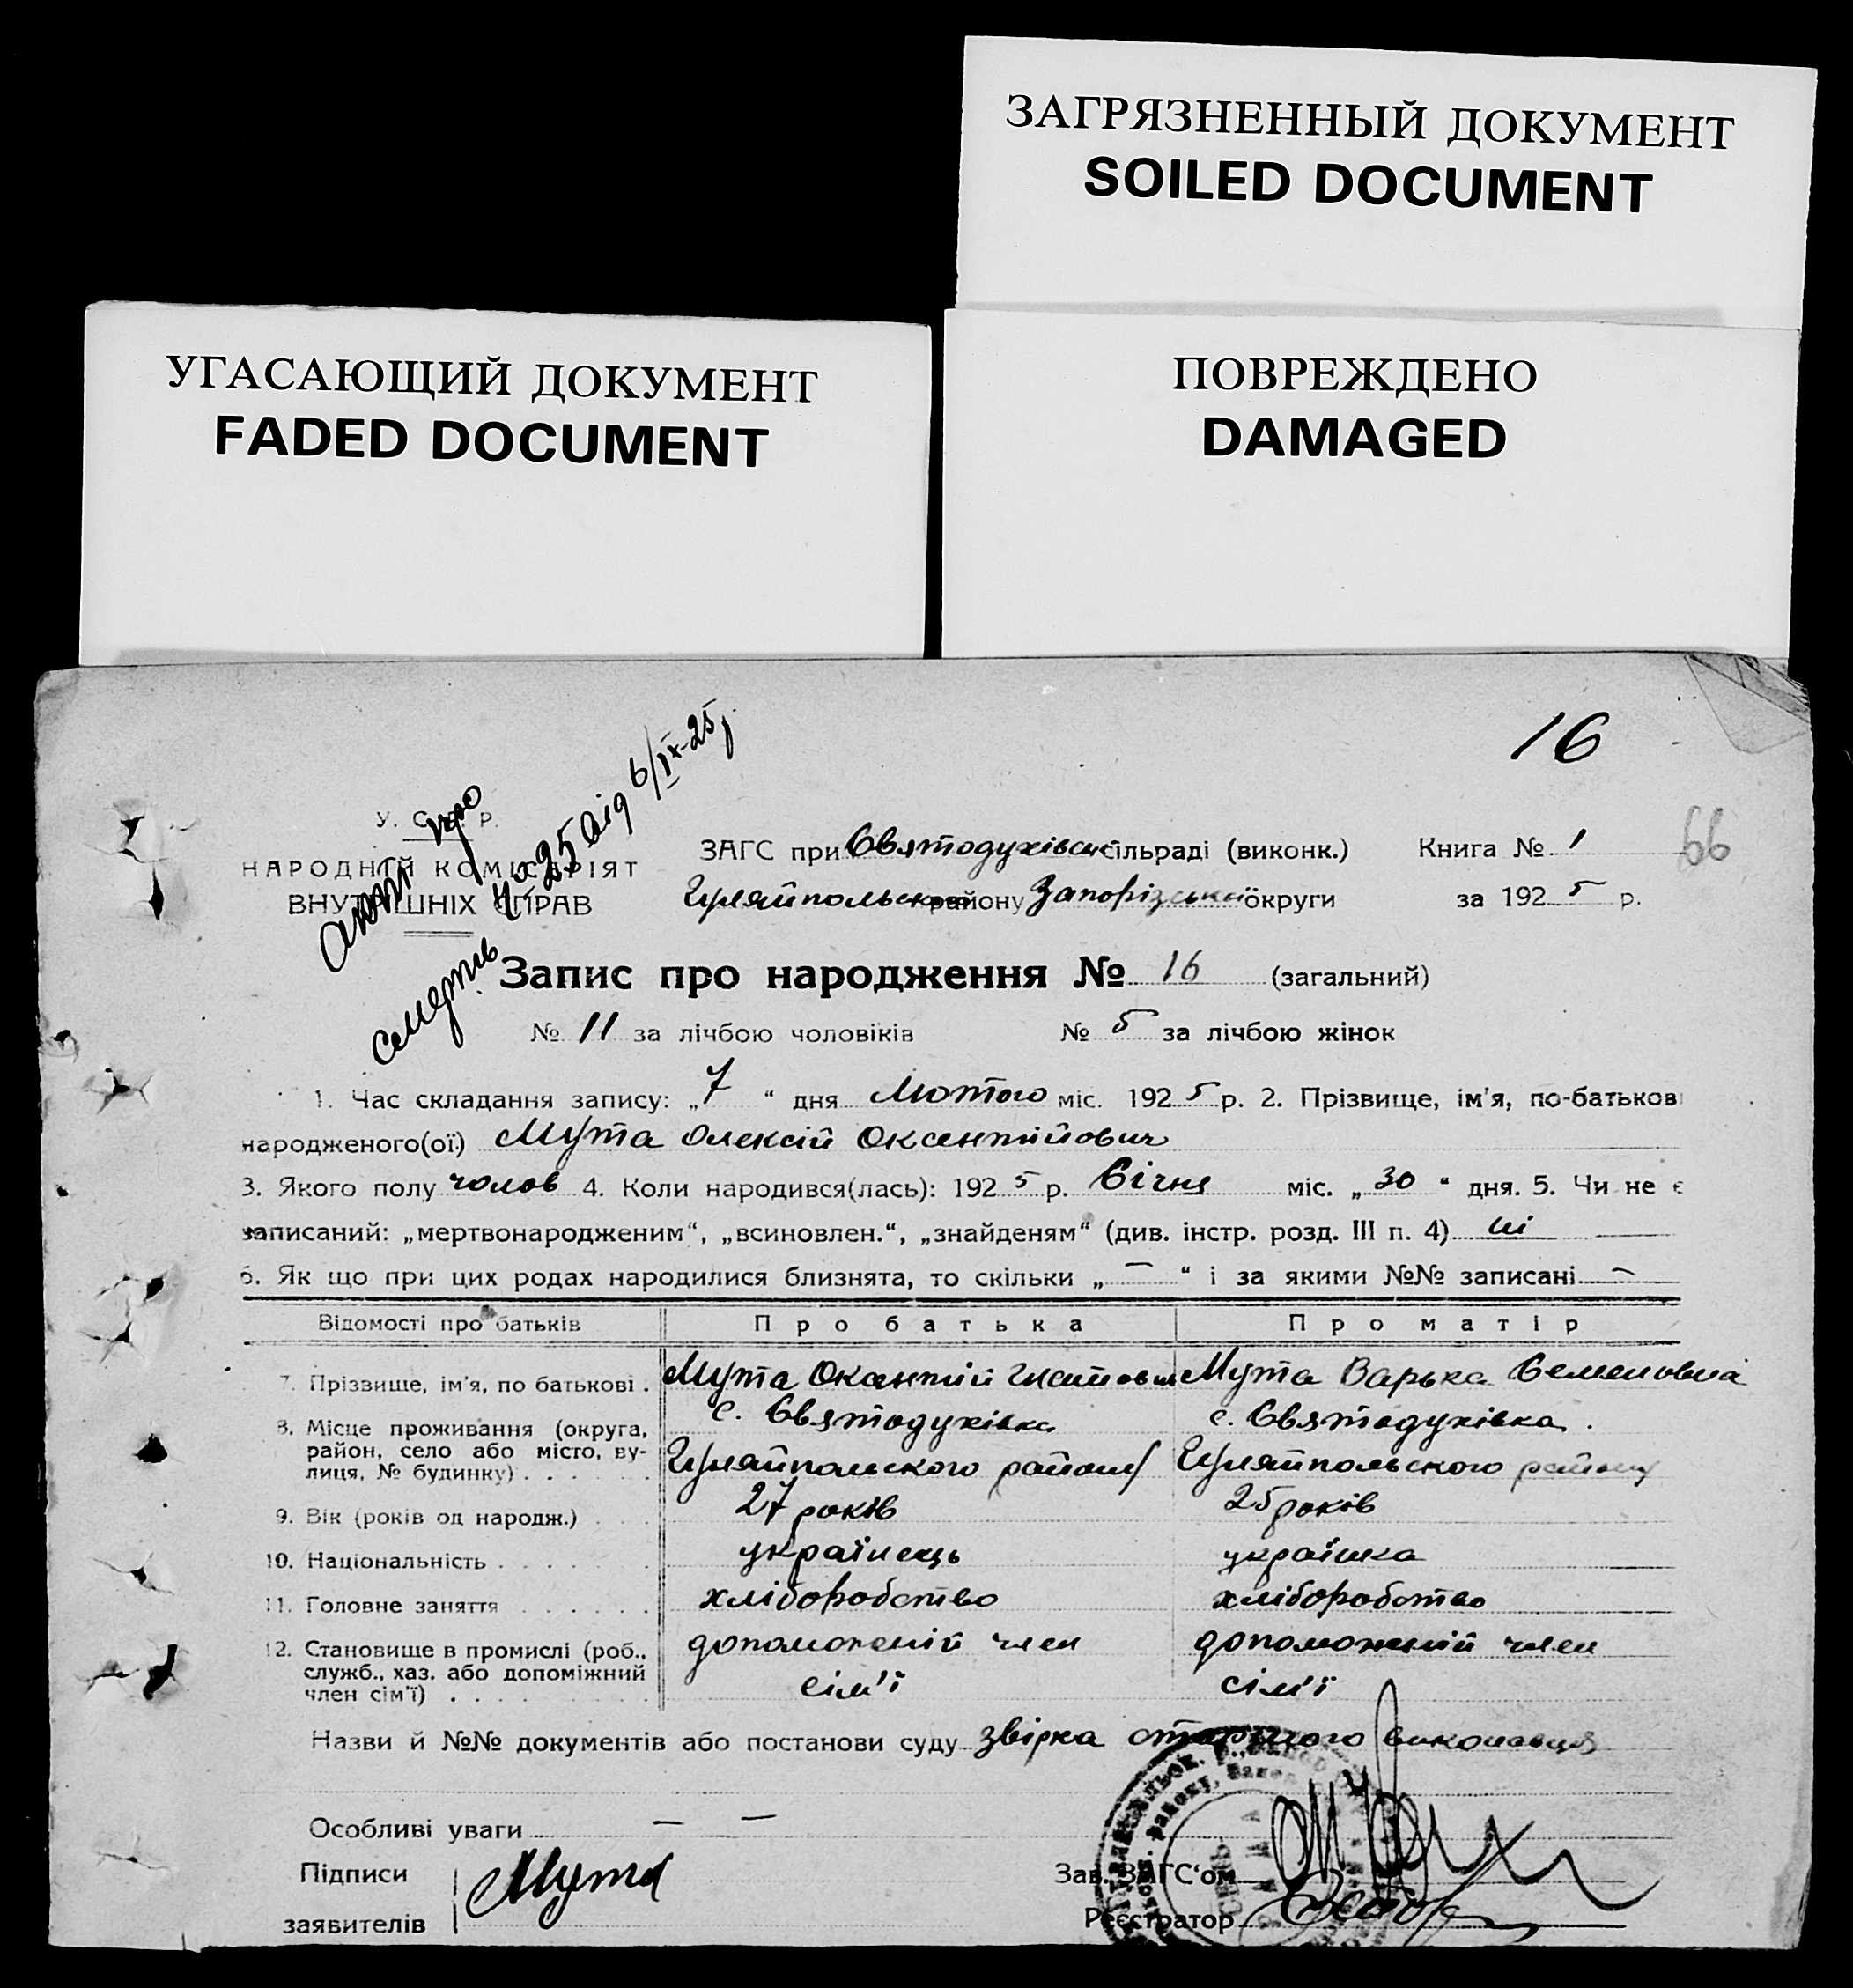 ЗАГРЯЗНЕННЫЙ ДОКУМЕНТ
SOILED DOCUMENT
УГАСАЮЩИЙ ДОКУМЕНТ
FADED DOCUMENT
ПОВРЕЖДЕНО
DAMAGED
16
66
акт про
смерть № 25 від 6/IX-25 р.
У. С. Р. Р.
НАРОДНІЙ КОМІСАРІЯТ
ВНУТРІШНІХ СПРАВ
ЗАГС при Святодухівськ сільраді (виконк.) Книга № 1
Гуляйпольского району Запорізської округи за 1925 р.
Запис про народження № 16 (загальний)
№ 11 за лічбою чоловіків № 5 за лічбою жінок
1. Час складання запису: „7“ дня Лютого міс. 1925 р. 2. Прізвище, ім'я, по-батькові
народженого(ої) Мута Олексій Оксентійович
3. Якого полу чолов 4. Коли народився(лась): 1925 р. Січня міс. „30“ дня. 5. Чи не є
записаний: „мертвонародженим“, „всиновлен.“, „знайденям“ (див. інстр. розд. III п. 4) ні
6. Як що при цих родах народилися близнята, то скільки „—“ і за якими №№ записані —
Відомості про батьків Про батька Про матір
7. Прізвище, ім'я, по батькові . Мута Оксентий Гнатович Мута Варька Семеновна
8. Місце проживання (округа, с. Святодухівка с. Святодухівка.
район, село або місто, ву-
лиця, № будинку) . . . Гуляйпольского району Гуляйпольского району
9. Вік (років од народж.) . . 27 років 25 років
10. Національність . . . . українець українка
11. Головне заняття . . . . хліборобство хліборобство
12. Становище в промислі (роб., допоможній член допоможній член
служб., хаз. або допоміжний
член сім'ї) . . . . сім'ї сім'ї
Назви й №№ документів або постанови суду звірка старшого виконавця
Особливі уваги — —
Підписи
заявителів Мута
Зав. ЗАГС'ом
Реєстратор